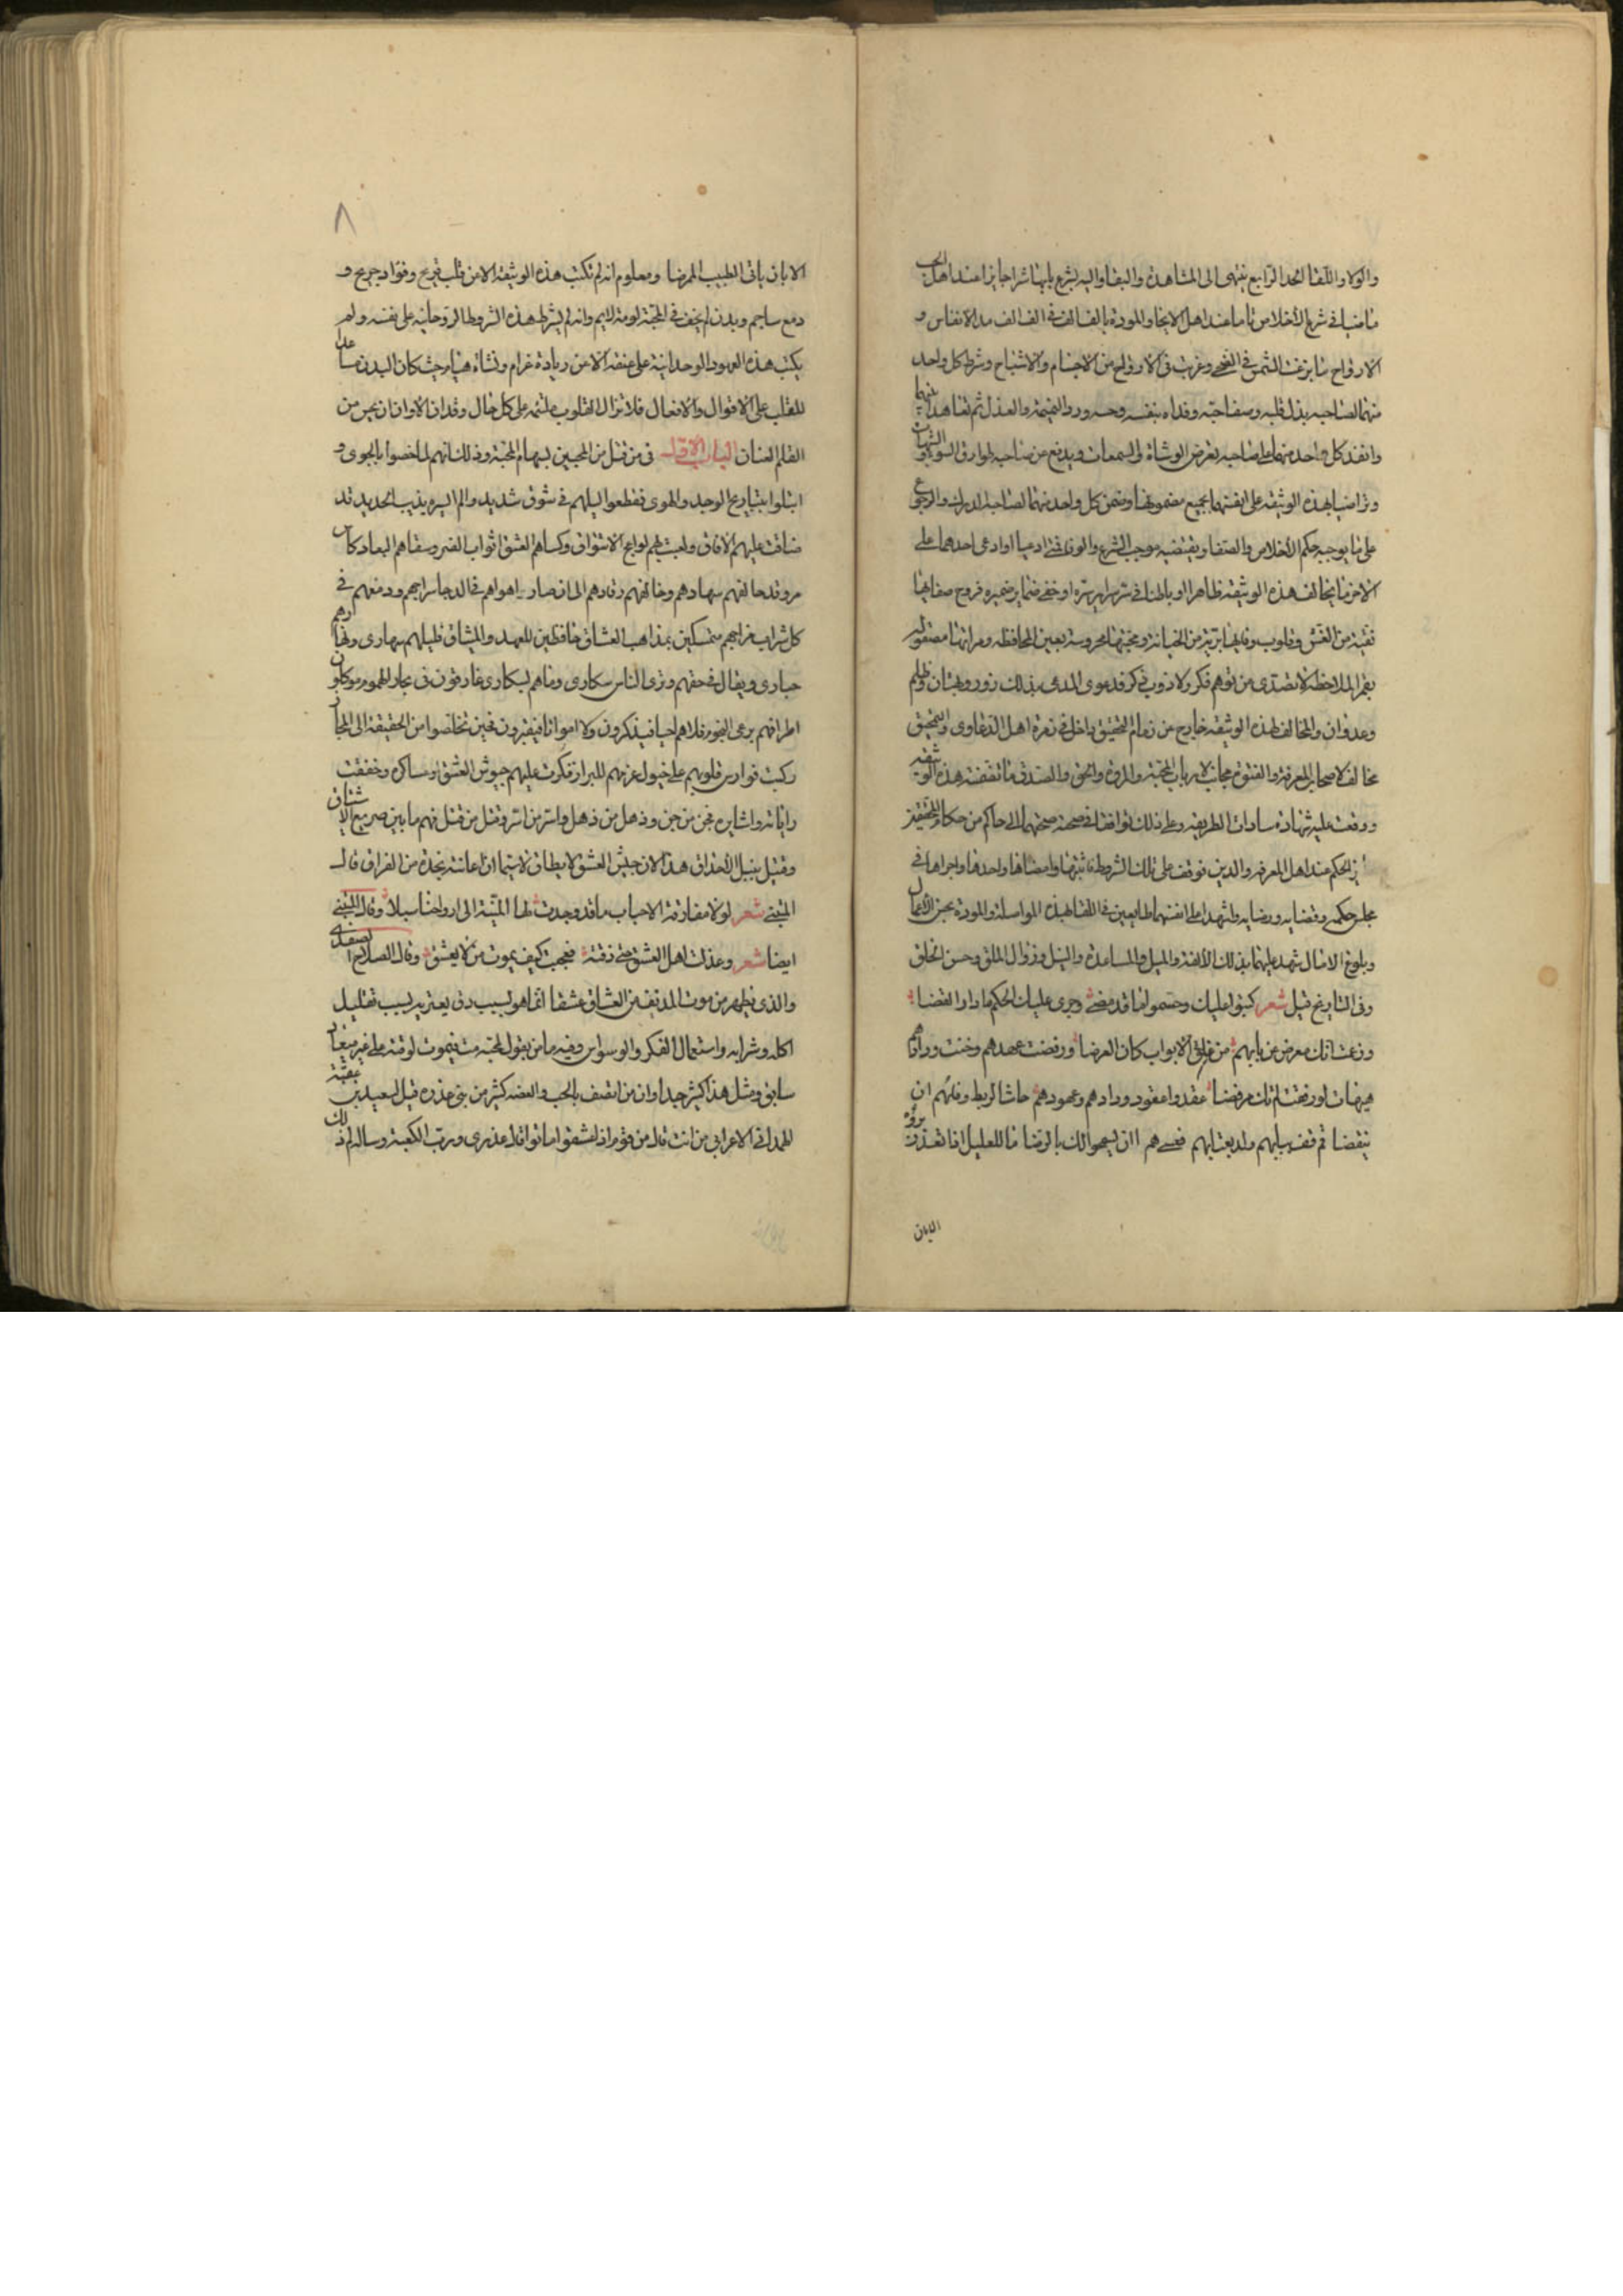 والولا واللقا الحد الرابع ينتهى الى المشاهدة والبقا واليه يشرع بابها شراجايزا عند اهل الحب
ماضيا فى شرع الاخلاص تاما عند اهل الاخا والمودة بالف الف فى الف الف مد الانفاس و
الارواح ما بزغت الشمس فى الضحى وغربت فى الارواح من الاجسام والاشباح وشرط كل واحد
منهما لصاحبه بذل قلبه وصفا حبه وفداه بنفسه وحسه ورد النميمة والعذل ثم تعاهدا بينهما
وانفذ كل واحد منهما على صاحبه بعرض الوشاة فى السمعات ويدفع عن صاحبه طوارق السو والشبهات
وتراضيا بهذه الوثيقة على انفسهما بجميع مضمونها وضمن كل واحد منهما لصاحبه الدرك والرجوع
على ما يوجبه حكم الاخلاص والصفا ويقتضيه موجب الشرع والوفا فمتى ادعيا او ادعى احدهما على
الاخر ما يخالف هذه الوثيقة ظاهرا او باطنا فى سر سراير سره او خفى ضماير ضميره فروح صفايها
نقية من الغش وقلوب وفايها بريه من الخيانة ومحبتها محروسة بعين المحافظه ومراتها مصقوله
بغير الملاحظة لا تصدى من توهم فكر ولا تذوب فى كر فدعوى المدعى بذلك زور وبهتان وظلم
وعدوان والمخالف لهذه الوثيقة خارج من زمام التحقيق داخل فى زمرة اهل الدعاوى والتمحيق
مخالف لاصحاب المعرفة والفتوة مجانب لارباب المحبة والمروة والحق والصدق ما تضمنته هذه الوثيقه
ووقعت عليه شهادة سادات الطريقه وعلى ذلك توافقا فى صحته صحتهما الى حاكم من حكام التحقيق
الحكم عند اهل المعرفه والدين فوقف على تلك الشروط فاثبتها وامضاها واخذها واجراها فى
مجلس حكمه وقضايه ورضايه واشهدا على انفسهما طايعين فى اللقا لهذه المواصلة والمودة بحسن الاعمال
وبلوغ الامال شهد عليهما بذلك الالفة والميل والمساعدة والنيل وزوال الملق وحسن الخلق
وفى التاريخ قيل شعر كتبوا عليك وحتموا فما قد مضى وجرى عليك الحكم ما دار القضا
وزعمت انك معرض عن بابهم من غلق الابواب كان العرضا ورفضت عهدهم وخنت ودادهم
هيهات لو رفضت لم تك مرفضا عقدوا عقود ودادهم وعهودهم حاشا لربط وفائهم ان
ينقضا قم قف ببابهم ولذ بعتابهم فعسى هم ان يسمحوا لك بالرضا ما للعليل اذا تعذر بروه
الابان
٨
الا بان ياتى الطبيب الممرضا ومعلوم انه لم تكتب هذه الوثيقة الا من قلب قريح وفواد جريح و
دمع ساجم وبدن لم يخف فى المحبة لومة لايم وانه لم يشرط هذه الشروط الروحانيه على نفسه ولم
يكتب هذه العهود الوحدانية على عنقه الا من زيادة غرام ونشاة هيام حيث كان البدن مساعدا
للقلب على الاقوال والافعال فلا تزال القلوب ملتمه على كل حال وقد ان الاوان ان يجر من
القلم العنان الباب الاول فى من قتل من المحبين بسهام المحبة وذلك انهم لما خصوا بالجوى و
ابتلوا بتباريح الوجد والهوى فقطعوا ليلهم فى شوق شديد والم اليسره يذيب الحديد قد
ضاقت عليهم الافاق ولعبت بهم لواعج الاشواق وكساهم العشق اثواب الضر وسقاهم البعاد كاس
مر وقد حالفهم سهادهم وخالفهم رقادهم الى ان صار اهواهم فى الدجا سراجهم ودمعهم فى
كل شراب مزاجهم متمسكين بمذاهب العشاق حافظين للعهد والميثاق فليلهم سهارى ونهارهم
حيارى ويقال فى حقهم وترى الناس سكارى وما هم بسكارى غارقون فى بحار الهموم موكلون
اطرافهم برعى النجوم فلا هم احيا فيذكرون ولا امواتا فيقبرون فحين تخلصوا من الحقيقة الى المجاز
ركبت فوارس قلوبهم على خيول عزمهم للبراز فكرت عليهم جيوش العشق وعساكره وخفقت
راياته واشايره فجن من جن وذهل من ذهل واسر من اسر وقتل من قتل فهم ما بين صريع الاشتياق
وقتيل بنبل الاحداق هذا لان جيش العشق لا يطاق لاسيما ان اعانته نجدة من الفراق قال
المتنبى شعر لولا مفارقة الاحباب ما وجدت لها المنية الى ارواحنا سبلا وقال المتنبى
ايضا شعر وعذلت اهل العشق حتى ذقته فعجبت كيف يموت من لا يعشق وقال الصلاح الصفدى
والذى يظهر من موت المدنفين العشاق عشقا انما هو بسبب دق يعتريه بسبب تقليل
اكله وشرابه واستعمال الفكر والوسواس وفيه ما من يقول لمحبه مت فيموت لوقته على غير ميعاد
سابق ومثل هذا كثير جدا وان من اتصف بالحب والعفه كثير من بنى عذره قيل لسعيد بن عقبة
الهمدانى الاعرابى من انت قال من قوم اذا عشقوا ماتوا قال عذرى ورب الكعبة وساله لم ذلك